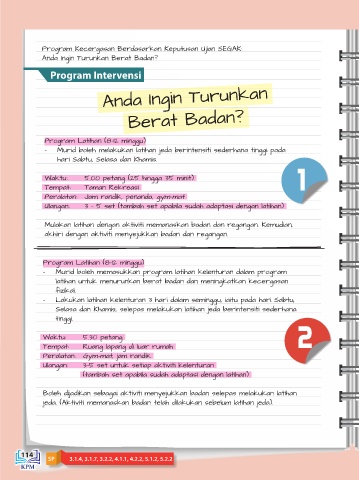 Program Kecergasan Berdasarkan Keputusan Ujian SEGAK:
Anda Ingin Turunkan Berat Badan?
Program Intervensi
Anda Ingin Turunkan
Berat Badan?
Program Latihan (8-12 minggu)
- Murid boleh melakukan latihan jeda berintensiti sederhana tinggi pada
hari Sabtu, Selasa dan Khamis.
Waktu: 5.00 petang (25 hingga 35 minit)
Tempat: Taman Rekreasi
Peralatan: Jam randik, penanda, gym mat
Ulangan: 3 - 5 set (tambah set apabila sudah adaptasi dengan latihan)
Mulakan latihan dengan aktiviti memanaskan badan dan regangan. Kemudian,
akhiri dengan aktiviti menyejukkan badan dan regangan.
1
Program Latihan (8-12 minggu)
- Murid boleh memasukkan program latihan kelenturan dalam program
latihan untuk menurunkan berat badan dan meningkatkan kecergasan
fizikal.
- Lakukan latihan kelenturan 3 hari dalam seminggu, iaitu pada hari Sabtu,
Selasa dan Khamis, selepas melakukan latihan jeda berintensiti sederhana
tinggi.
Waktu: 5.30 petang
Tempat: Ruang lapang di luar rumah
Peralatan: Gym mat, jam randik
Ulangan: 3-5 set untuk setiap aktiviti kelenturan
(tambah set apabila sudah adaptasi dengan latihan)
2
Boleh dijadikan sebagai aktiviti menyejukkan badan selepas melakukan latihan
jeda. (Aktiviti memanaskan badan telah dilakukan sebelum latihan jeda).
114
KPM
SP 3.1.4, 3.1.7, 3.2.2, 4.1.1, 4.2.2, 5.1.2, 5.2.2